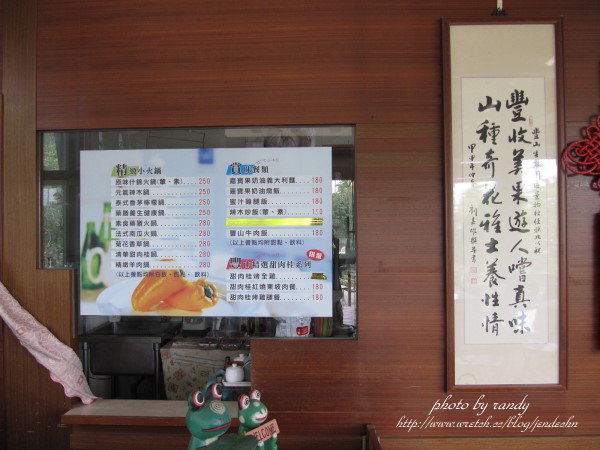 精緻小火鍋
原味什錦火鍋(葷、素)....250
元氣辣木鍋....250
泰式香茅檸檬鍋....250
藥膳養生健康鍋....250
素食藥膳火鍋....250
法式南瓜火鍋....250
菊花香草鍋....280
清華甜肉桂鍋....280
精燉羊肉鍋....280
(以上餐點均附白飯、甜點、飲料)
嘉寶果奶油義大利麵...180
嘉寶果奶油燉飯....180
蜜汁雞腿飯....180
辣木炒飯(葷、素)...150
豐山牛肉飯....180
(以上餐點均附甜點、飲料)
精選甜肉桂系列
甜肉桂烤全雞
甜肉桂紅燒東坡肉餐....180
甜肉桂烤雞腿餐....180
豐收美果遊人嚐真味
山種奇花雅士養性情
WELCOME
photo by randy
http://www.wretch.cc/blog/jendeshn